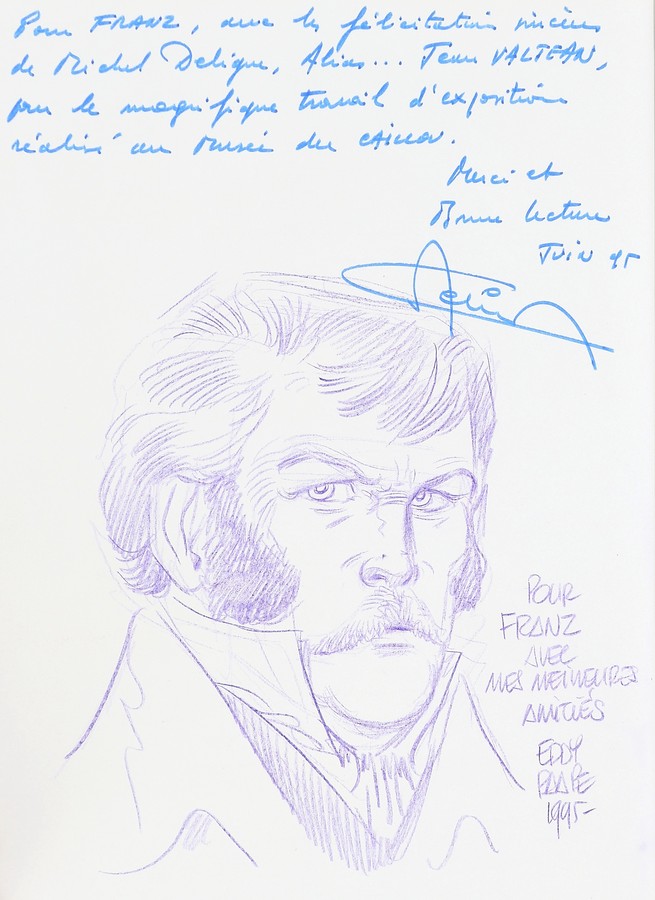 Pour FRANZ, avec les félicitations sincères
de Michel Deligne, Alias... Jean VALJEAN,
pour le magnifique travail d'exposition
réalisé au Musée du CAILLOU.
Merci et
Bonne lecture
JUIN 95
POUR
FRANZ
AVEC
MES MEILLEURES
AMITIÉS
EDDY
PAAPE
1995-